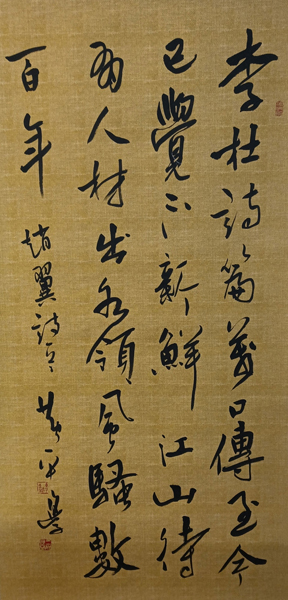 李杜詩篇萬口傳至今
已覺不新鮮江山待
有人材出各領風騷數
百年
趙翼詩